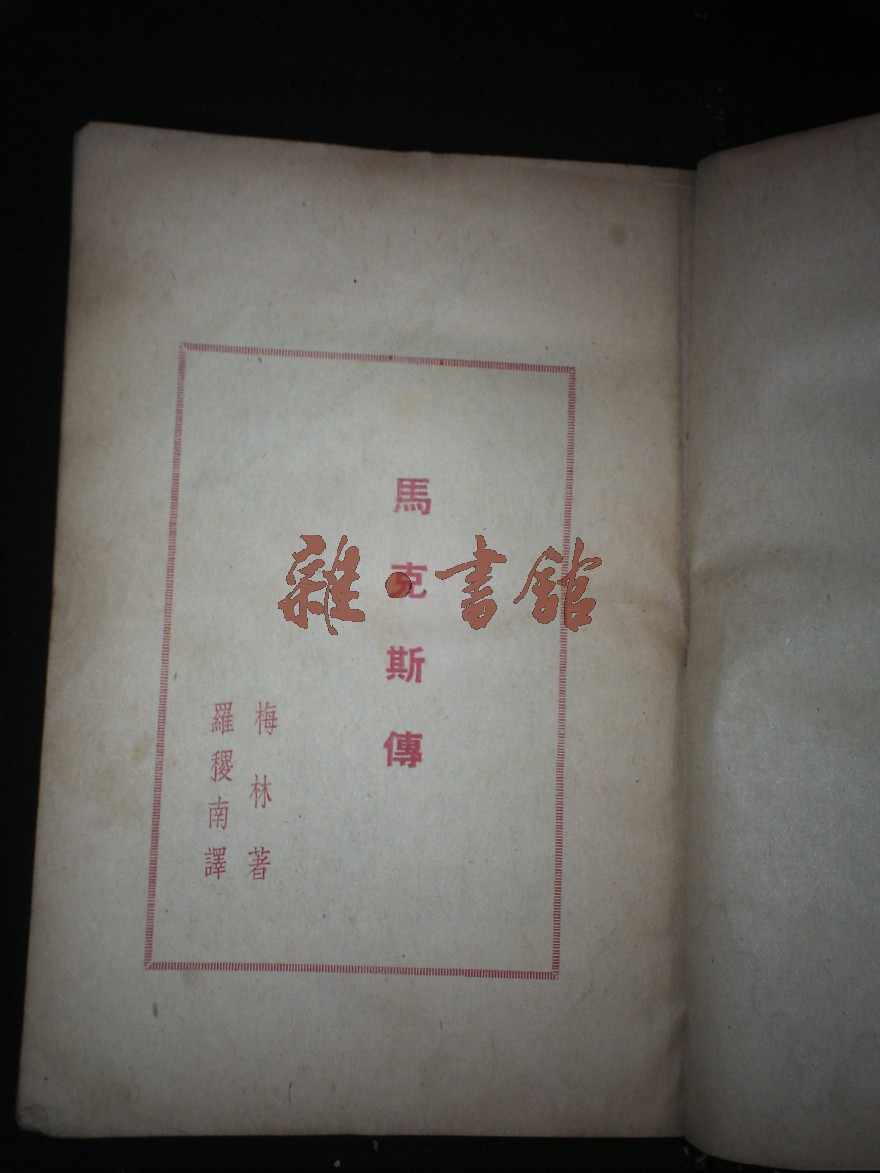 馬克斯傳
梅林著
羅稷南譯
雜·書館